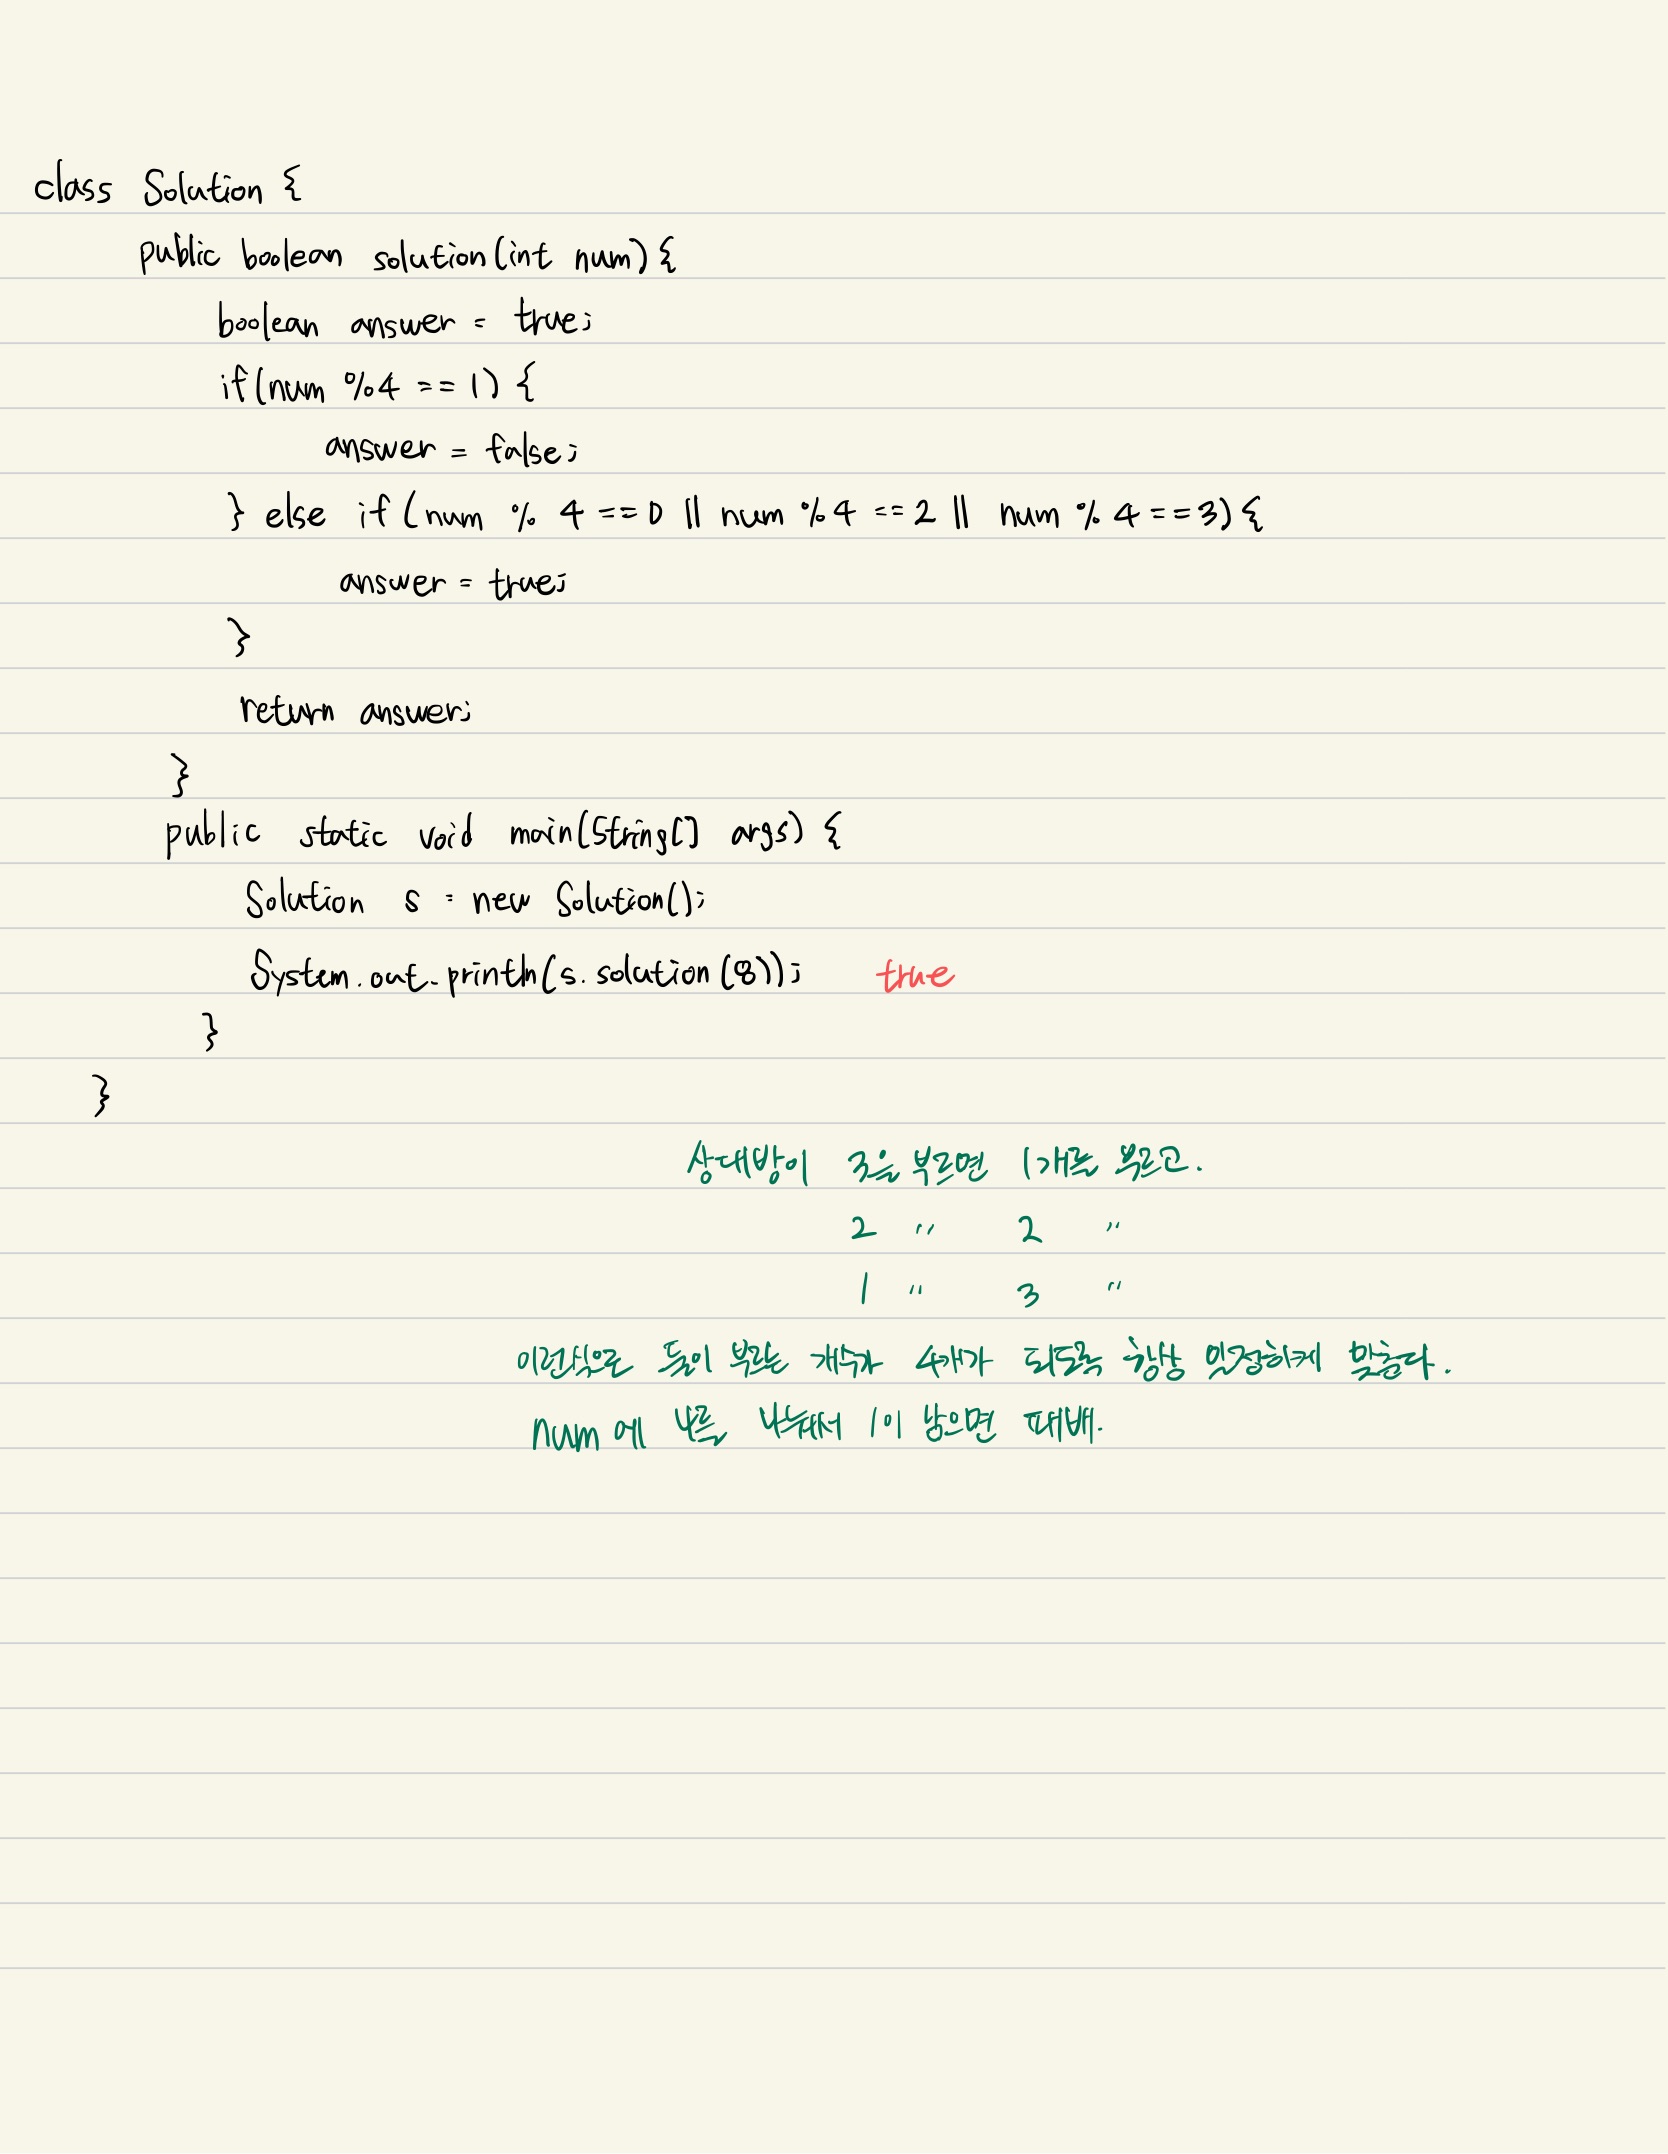 class Solution {
public boolean solution(int num){
boolean answer = true;
if(num %4 == 1) {
answer = false;
} else if (num % 4 == 0 || num %4 == 2 || num % 4 == 3){
answer = true;
}
return answer;
}
public static void main(String[] args) {
Solution s = new Solution();
System.out.println(s.solution(8)); true
}
}
상대방이 3을 부르면 1개를 부르고.
2 〃 2 〃
1 〃 3 〃
이런식으로 둘이 부르는 개수가 4개가 되도록 항상 일정하게 맞춘다.
num에 4를 나눠서 1이 남으면 패배.